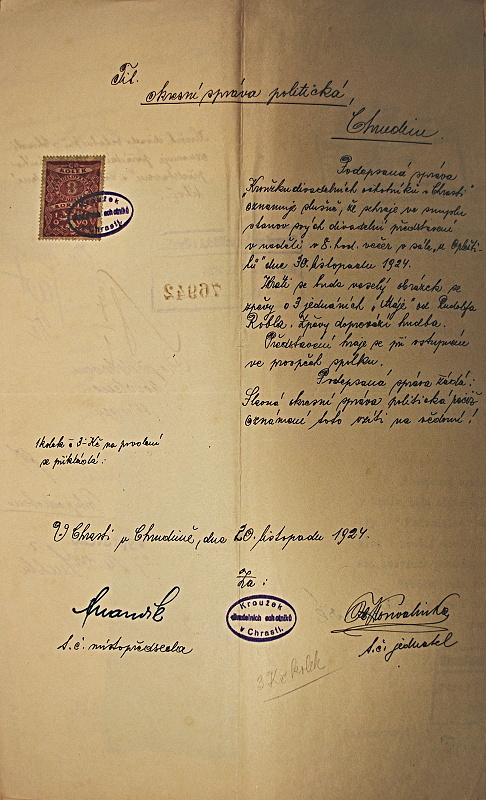 Tit.
okresní správa politická,
Chrudim.
Podepsaná správa
"Kroužku divadelních ochotníků v Chrasti"
oznamuje slušně, že sehraje ve smyslu
stanov svých divadelní představení
v neděli v 8. hod. večer v sále
dne 30. listopadu 1924.
Hráti se bude veselý obrázek se
zpěvy o 3 jednáních "Máje" od Rudolfa
Zpěvy doprovází hudba.
Představení hraje se při vstupném
ve prospěch spolku.
Podepsaná správa žádá:
Slavná okresní správa politická račiž
oznámení toto vzíti na vědomí!
KOLEK
3
Kroužek
divadelních ochotníků
v Chrasti.
76942
1 kolek à 3 Kč na povolení
se přikládá.
V Chrasti u Chrudimě, dne 20. listopadu 1924.
Za:
Kroužek
divadelních ochotníků
v Chrasti.
t. č. místopředseda
t. č. jednatel
3 Kč kolek